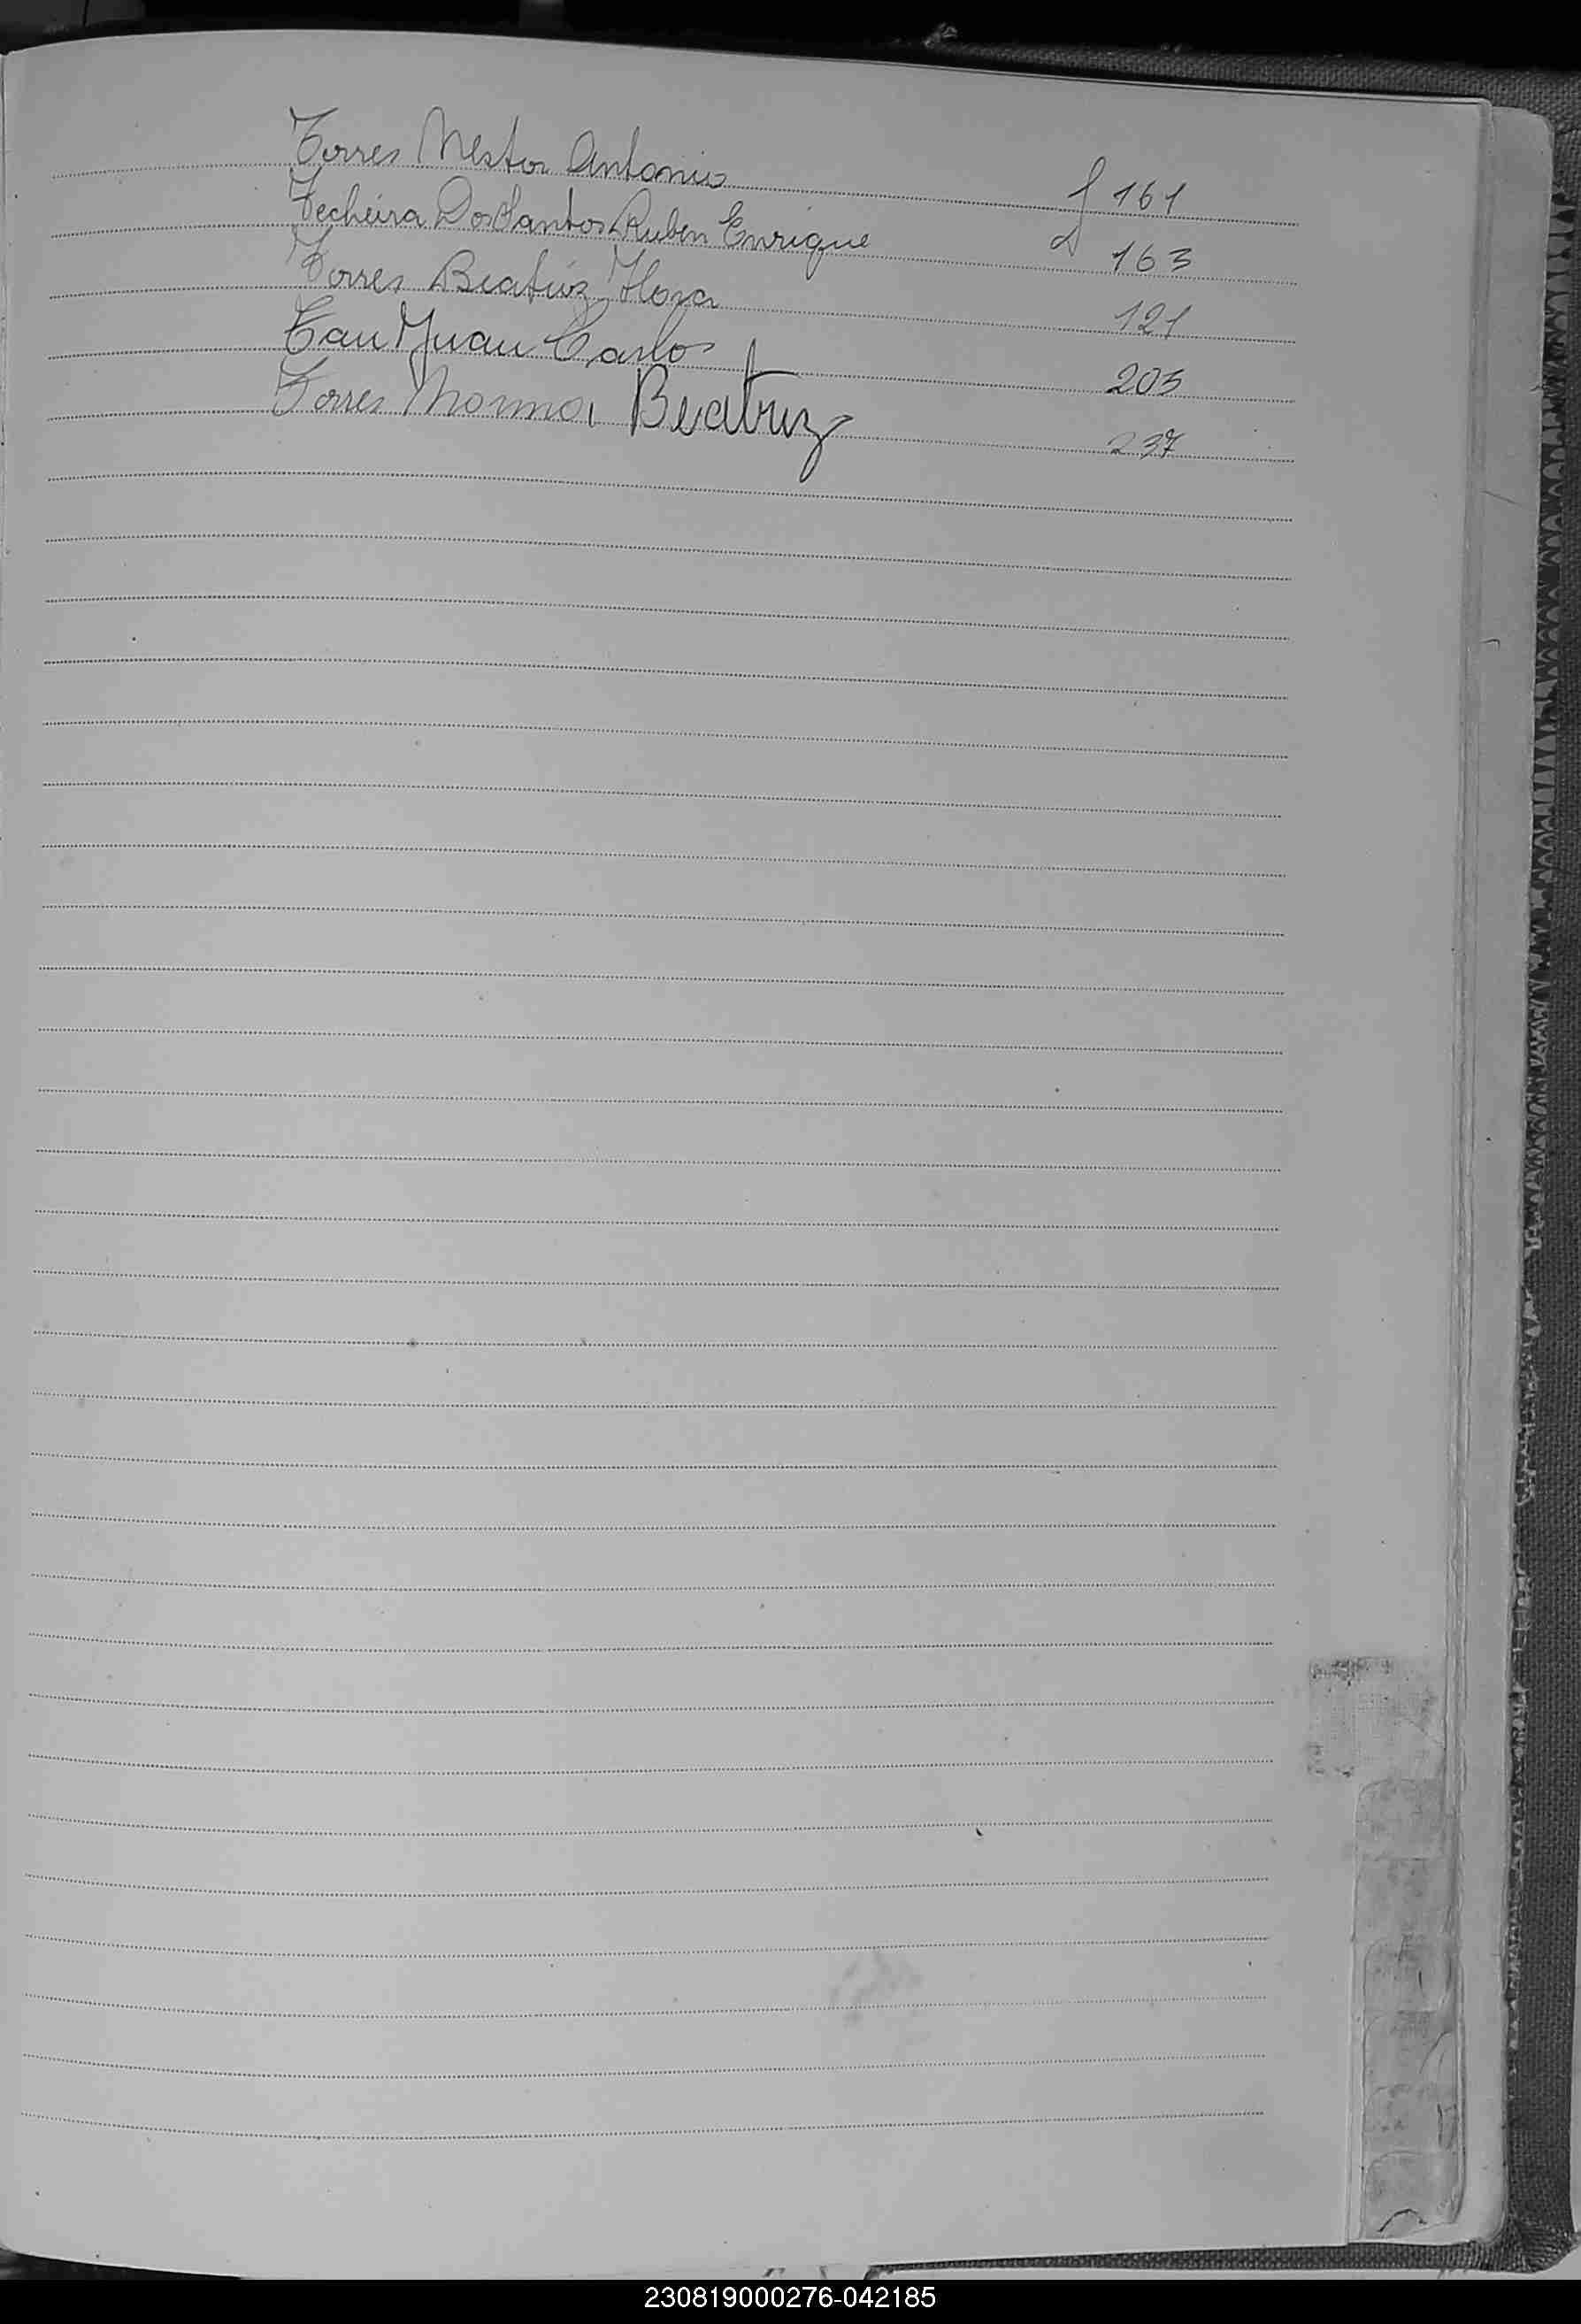 Torres Nestor Antonio f 161
Techeira Dos Santos Ruben Enrique 163
Torres Beatriz Flora 121
Tau Juan Carlos 205
Torres Norma Beatriz 237
230819000276-042185